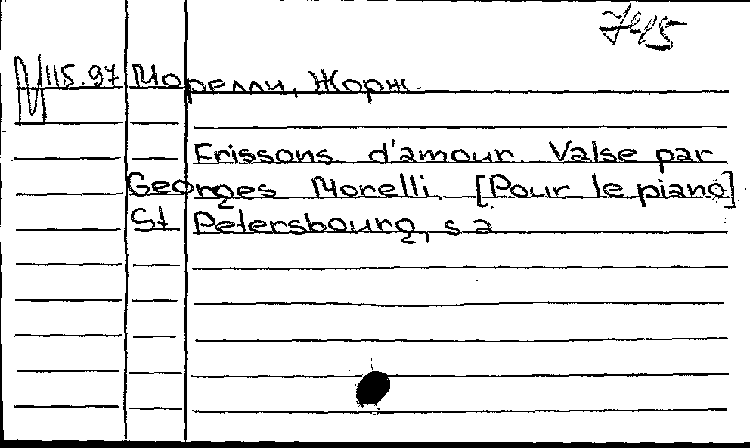 745
115.97 Морелли, Жорж.
Frissons d'amour. Valse par
Georges Morelli. [Pour le piano]
St. Petersbourg, s.a.